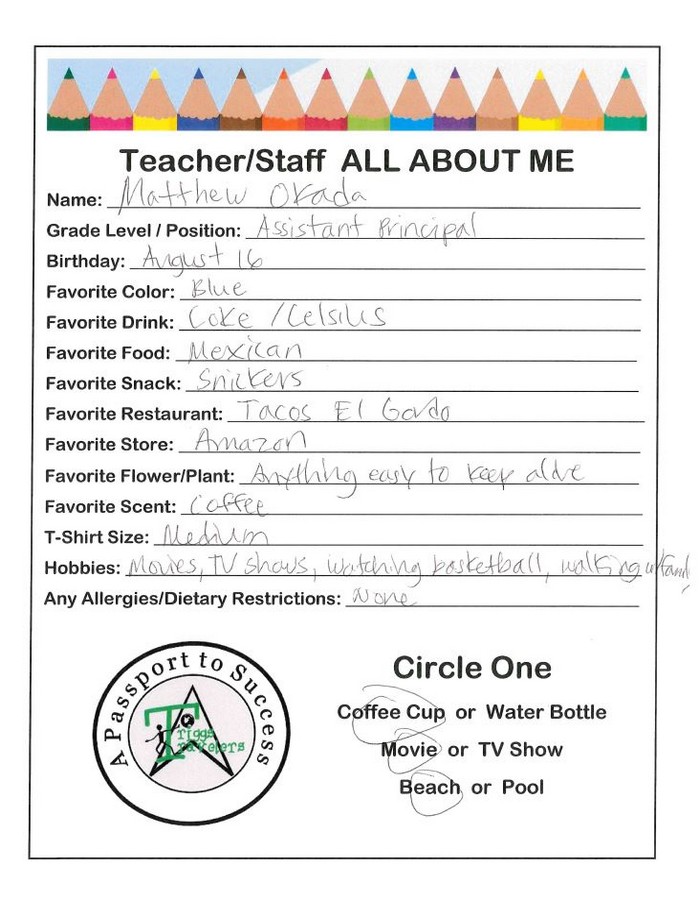 Teacher/Staff ALL ABOUT ME
Name: Matthew Okada
Grade Level / Position: Assistant Principal
Birthday: August 16
Favorite Color: Blue
Favorite Drink: Coke / Celsius
Favorite Food: Mexican
Favorite Snack: Snickers
Favorite Restaurant: Tacos El Gordo
Favorite Store: Amazon
Favorite Flower/Plant: Anything easy to keep alive
Favorite Scent: Coffee
T-Shirt Size: Medium
Hobbies: Movies, TV shows, watching basketball, walking w/ family
Any Allergies/Dietary Restrictions: None
A Passport to Success
Triggs
Travelers
Circle One
Coffee Cup or Water Bottle
Movie or TV Show
Beach or Pool